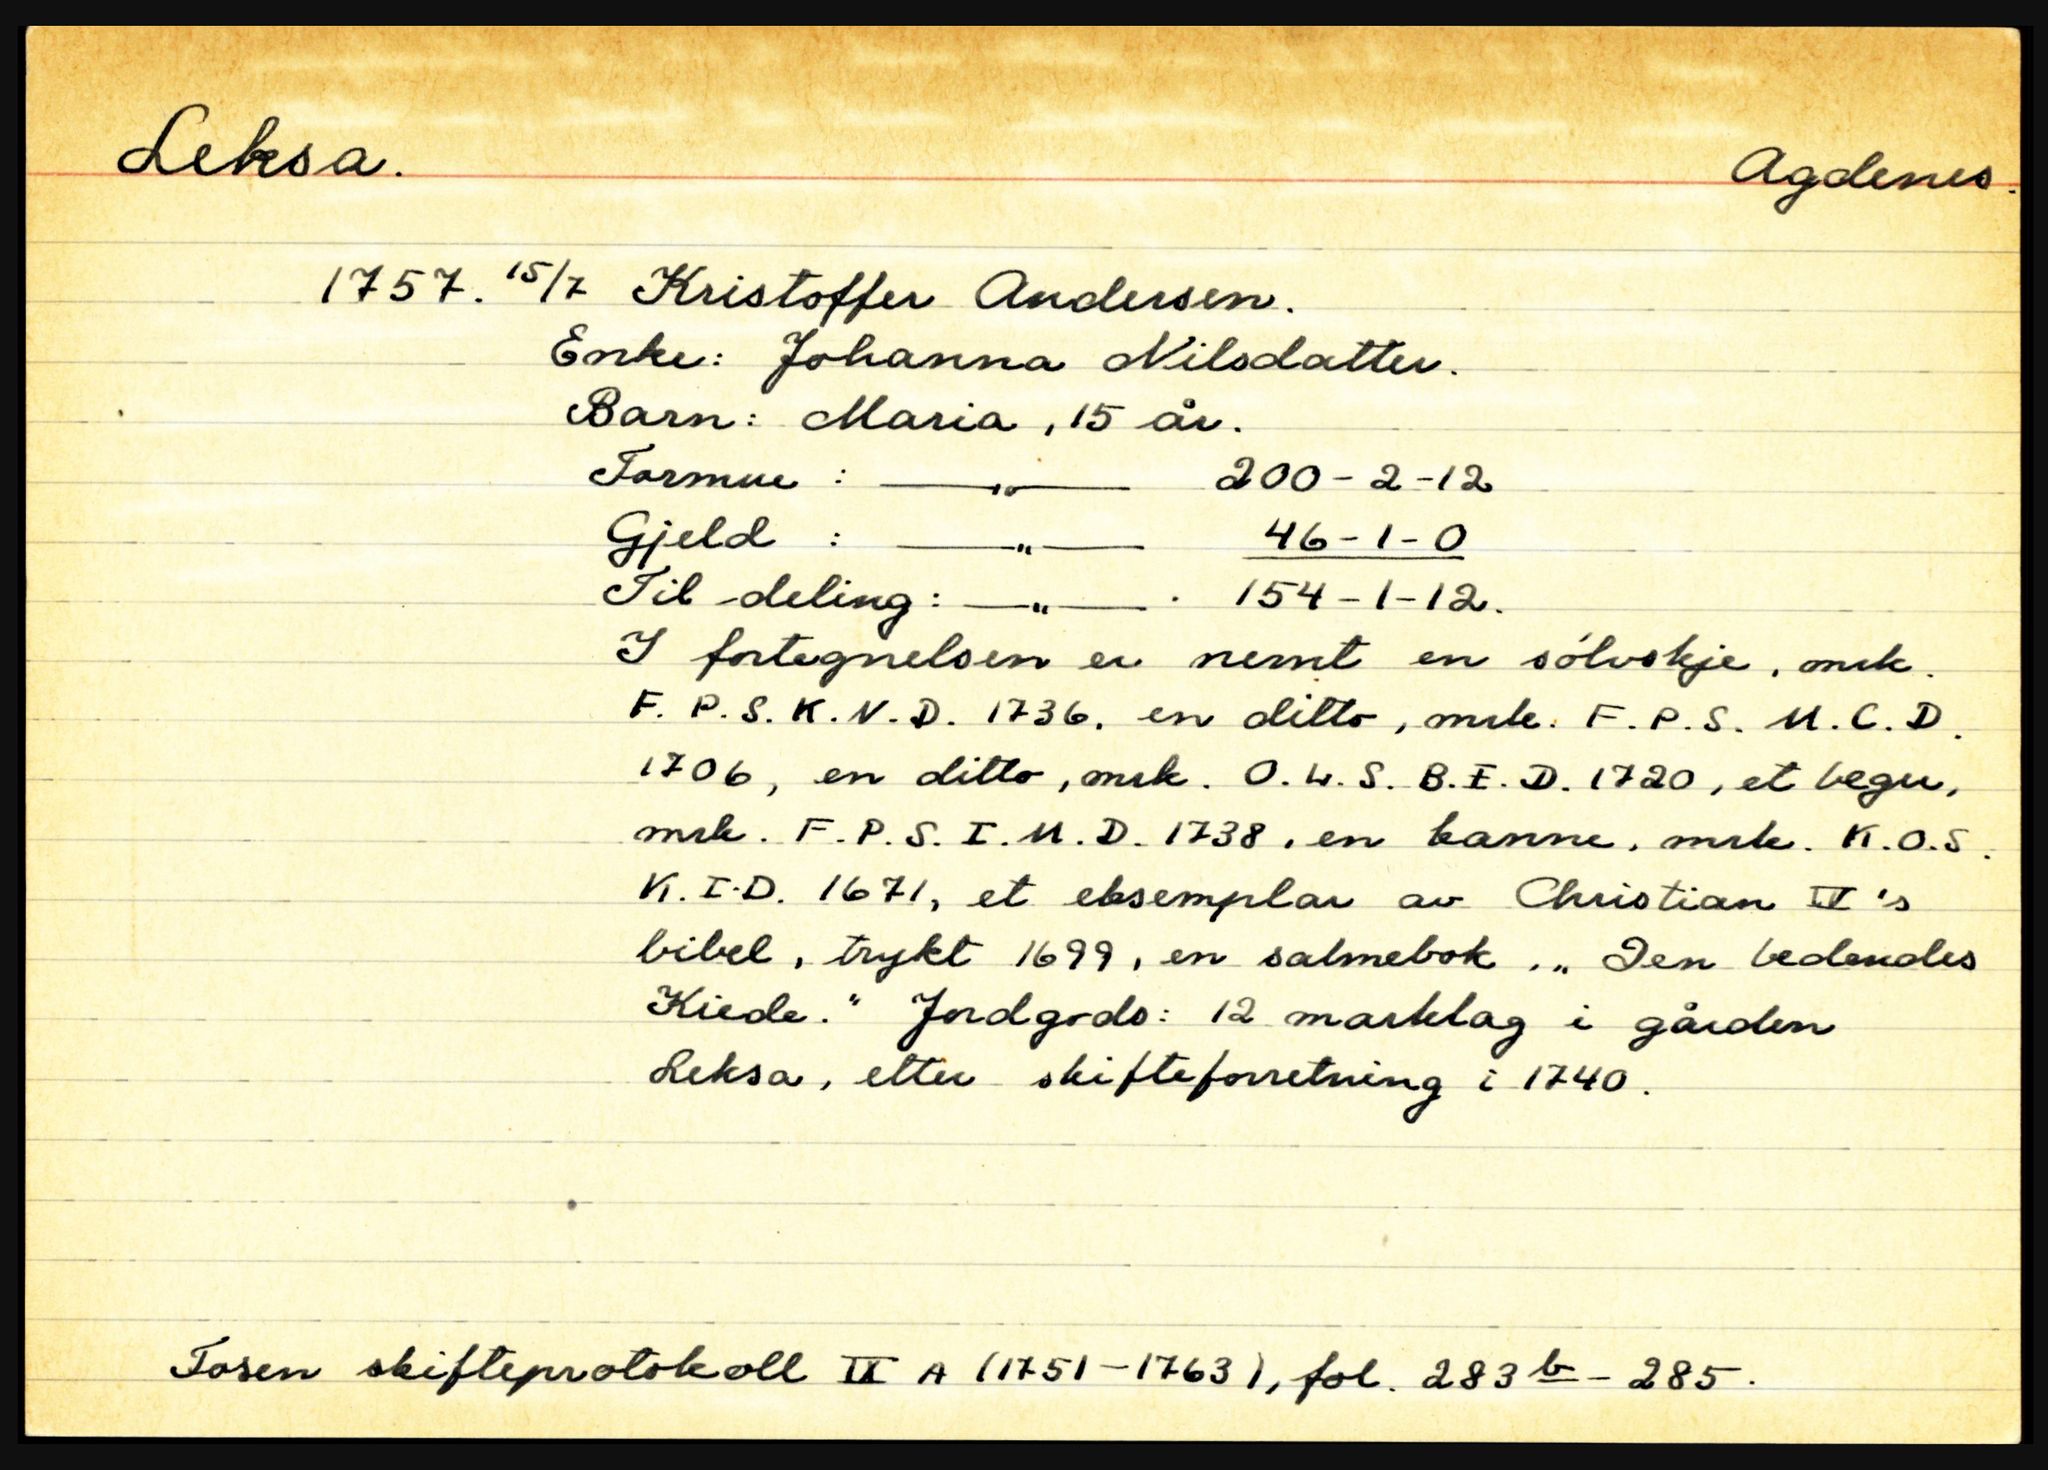 Leksa. Agdenes.
1757. 15/7 Kristoffer Andersen.
Enke: Johanna Nilsdatter.
Barn: Maria, 15 år.
Formue : —„— 200-2-12
Gjeld : —„— 46-1-0
Til deling: —„— 154-1-12.
I fortegnelsen er nemt en sólvskje, mrk.
F. P. S. K. N. D. 1736, en ditto, mrk. F. P. S. M. C. D.
1706, en ditto, mrk. O. L. S. B. E. D. 1720, et beger,
mrk. F. P. S. I. M. D. 1738, en kanne, mrk. K. O. S.
K. I. D. 1671, et eksemplar av Christian IV's
bibel, trykt 1699, en salmebok, „Den bedendes
Kiede." Jordgods: 12 marklag i gården
Leksa, etter skifteforretning i 1740.
Fosen skifteprotokoll II A (1751-1763), fol. 283 b - 285.